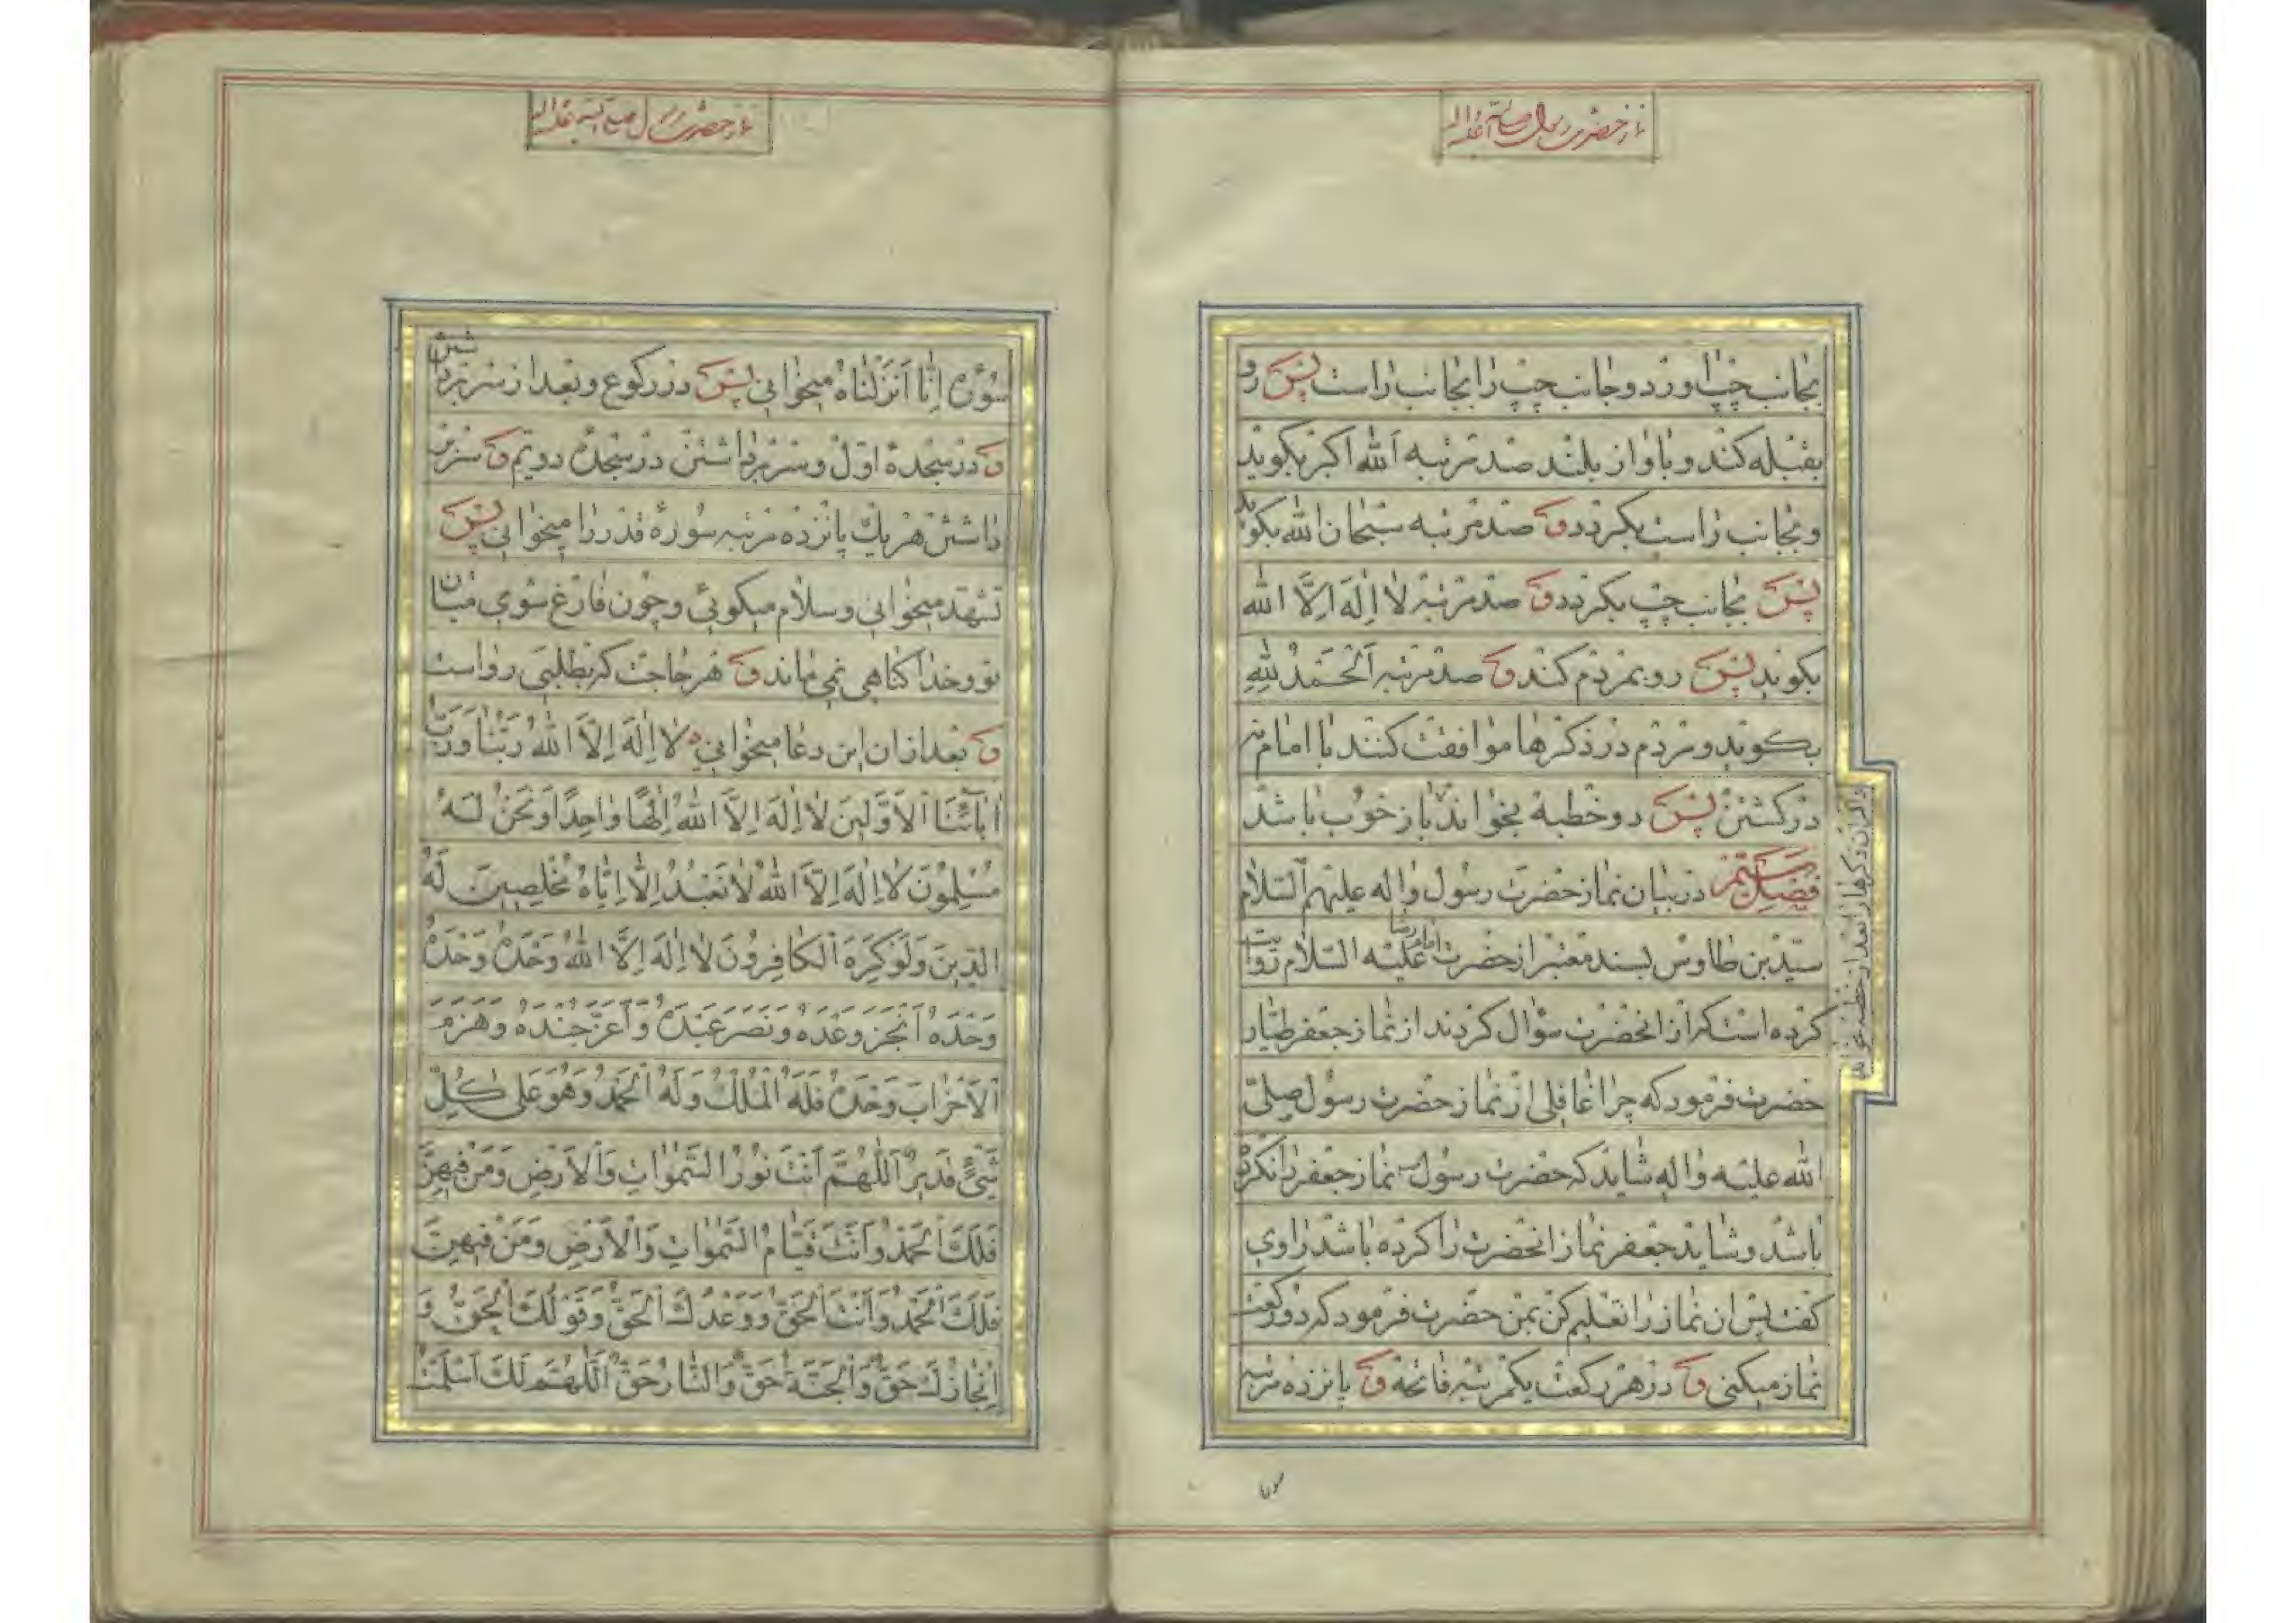 نماز حضرت رسول صلی الله علیه و اله
بجانب چپ اورد و جانب چپ را بجانب راست پس رو
بقبله کند و باواز بلند صد مرتبه الله اکبر بکوید
و بجانب راست بکردد و صد مرتبه سبحان الله بکوید
پس بجانب چپ بکردد و صد مرتبه لا اله الا الله
بکوید پس رو بمردم کند و صد مرتبه الحمد لله
بکوید و مردم در ذکرها موافقت کنند با امام نه
در کشتن پس دو خطبه بخواند باز خوب باشد
واکر ان ذکرها را بعد از خطبه
فصل در بیان نماز حضرت رسول و اله علیهم السلام
سید بن طاوس بسند معتبر از حضرت امام رضا علیه السلام روایت
کرده است که از انحضرت سؤال کردند از نماز جعفر طیار
حضرت فرمود که چرا غافلی از نماز حضرت رسول صلی
الله علیه و اله شاید که حضرت رسول نماز جعفر را نکرده
باشد و شاید جعفر نماز انحضرت را کرده باشد راوی
کفت پس ان نماز را تعلیم کن بمن حضرت فرمود که دو رکعت
نماز میکنی و در هر رکعت یکمرتبه فاتحه و پانزده مرتبه
نماز حضرت رسول صلی الله علیه و اله
سوره اِنّا اَنزَلناهُ میخوانی پس در رکوع و بعد از سر برداشتن
و در سجدهٔ اول و سر برداشتن در سجده دویم و سر بر
داشتن هر یك پانزده مرتبه سورهٔ قدر را میخوانی پس
تشهد میخوانی و سلام میکوئی و چون فارغ شوی میان
تو و خدا کناهی نمی ماند و هر حاجت که بطلبی رواست
و بعد ازان این دعا میخوانی لا اِلٰهَ اِلَّا اللهُ رَبُّنا وَرَبُّ
اٰبائِنَا الْاَوَّلینَ لا اِلٰهَ اِلَّا اللهُ اِلٰهًا واحِدًا وَنَحْنُ لَهُ
مُسْلِمُونَ لا اِلٰهَ اِلَّا اللهُ لا نَعْبُدُ اِلّا اِیّاهُ مُخْلِصینَ لَهُ
الدّینَ وَلَوْ کَرِهَ الْکافِرُونَ لا اِلٰهَ اِلَّا اللهُ وَحْدَهُ وَحْدَهُ
وَحْدَهُ اَنْجَزَ وَعْدَهُ وَنَصَرَ عَبْدَهُ وَاَعَزَّ جُنْدَهُ وَهَزَمَ
الْاَحْزابَ وَحْدَهُ فَلَهُ الْمُلْكُ وَلَهُ الْحَمْدُ وَهُوَ عَلی کُلِّ
شَیْءٍ قَدیرٌ اَللّهُمَّ اَنْتَ نُورُ السَّمٰواتِ وَالْاَرْضِ وَمَنْ فیهِنَّ
فَلَكَ الْحَمْدُ وَاَنْتَ قَیّامُ السَّمٰواتِ وَالْاَرْضِ وَمَنْ فیهِنَّ
فَلَكَ الْحَمْدُ وَاَنْتَ الْحَقُّ وَوَعْدُكَ الْحَقُّ وَقَوْلُكَ الْحَقُّ وَ
اِنْجازُكَ حَقٌّ وَالْجَنَّةُ حَقٌّ وَالنّارُ حَقٌّ اَللّهُمَّ لَكَ اَسْلَمْتُ